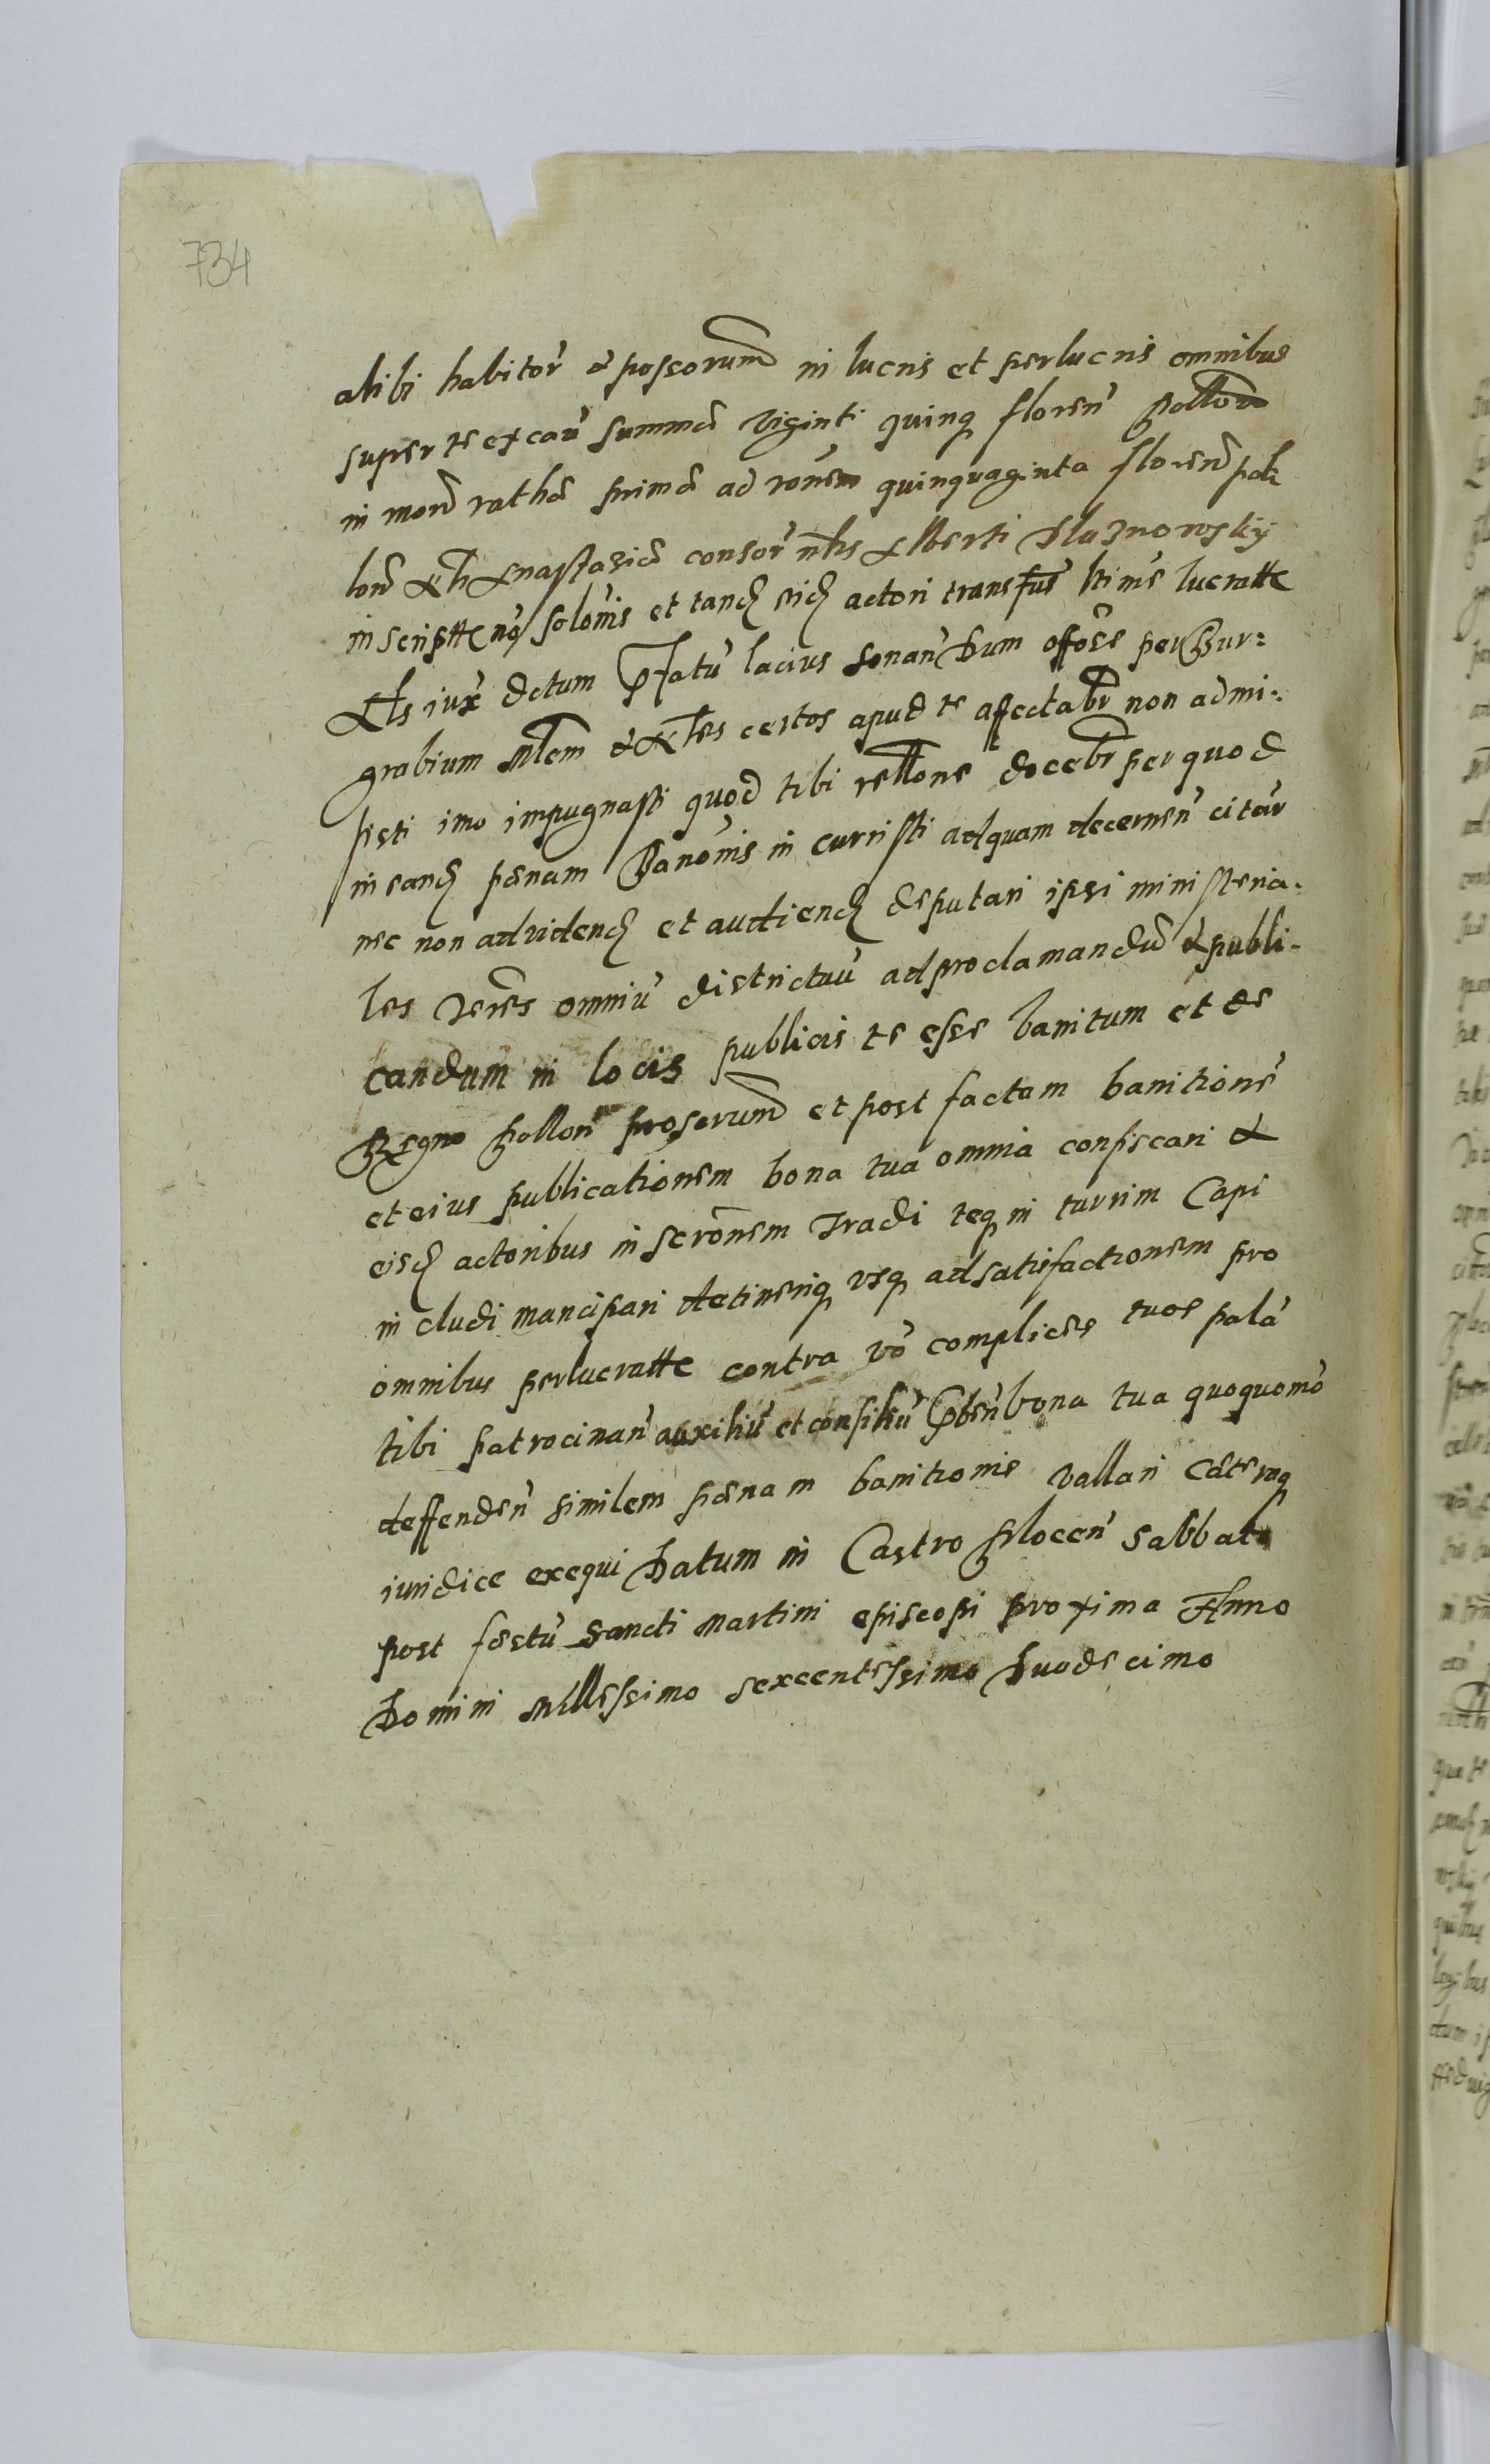 734
alibi habitor et possorum in lucris et perlucris omnibus
super te ex cau summa viginti quinq floren Pollon
in mon ratha prima ad ronem quinquaginta floren pol
bon Anastasia consor nlis Alberti Dluznowsky
in scriptte no solonis et tandz eidz actori transfus ltime lucratte
Als iux dctum pfatu lacius sonan Dum offose per Bur=
grabium Mtem et Atles certos apud te affectabr non admi-
sisti imo impugnasti quod tibi rellone docebr per quod
in eandz pœnam Banonis in curristi ad quam decernen citar
nec non ad videndz et audiendz deputari ipsi ministeria-
les Teres omniu districtuu ad proclamandu et publi-
candum in locis publicis te esse banitum et de
Regno Pollon proscrum et post factam banitione
et eius publicationem bona tua omnia confiscari et
eisdz actoribus in scronem Tradi teq in turrim Capi
in cludi mancipari detineriq usq ad satisfactionem pro
omnibus perlucratte contra vo complices tuos pala
tibi patrocinan auxiliu et consiliu pben bona tua quoquomo
deffenden similem pœnam banitionis vallari Cæteraq
iuridice exequi Datum in Castro Plocen Sabbato
post festu Sancti Martini episcopi proxima Anno
Domini Millessimo sexcentessimo Duodecimo